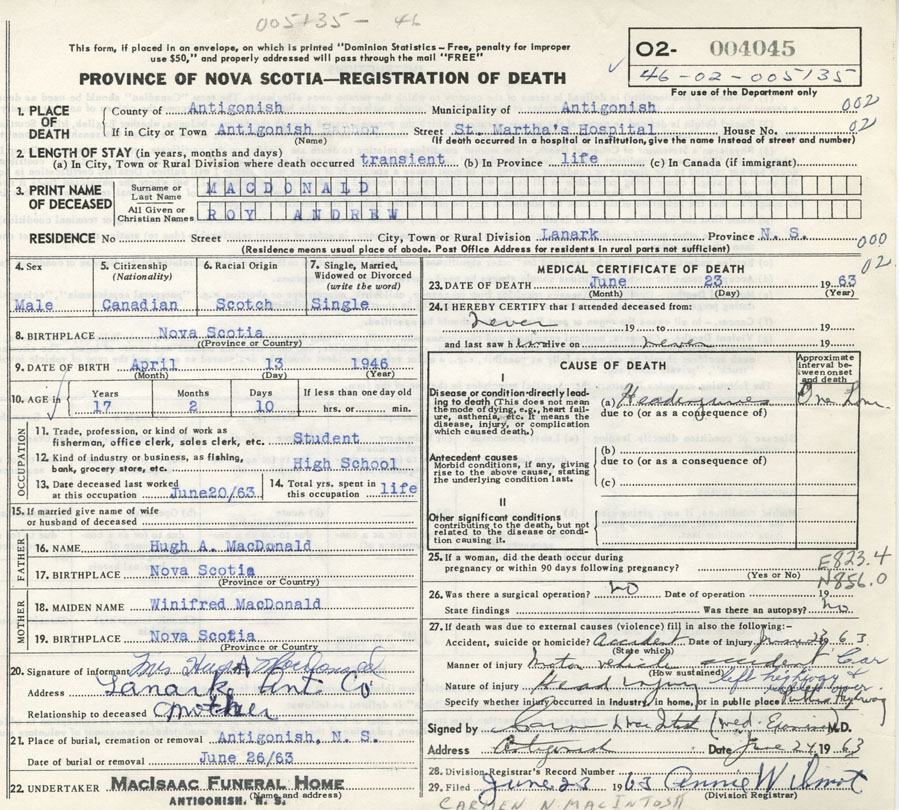 005135- 46
This form, if placed in an envelope, on which is printed "Dominion Statistics – Free, penalty for improper
use $50," and properly addressed will pass through the mail "FREE"
O2- 004045
46-02-005135
For use of the Department only
PROVINCE OF NOVA SCOTIA—REGISTRATION OF DEATH
1. PLACE OF DEATH County of Antigonish Municipality of Antigonish 002
If in City or Town Antigonish Harbor Street St. Martha's Hospital House No. 02
(Name) (If death occurred in a hospital or institution, give the name instead of street and number)
2. LENGTH OF STAY (in years, months and days)
(a) In City, Town or Rural Division where death occurred transient (b) In Province life (c) In Canada (if immigrant)
3. PRINT NAME OF DECEASED Surname or Last Name MACDONALD
All Given or Christian Names ROY ANDREW
RESIDENCE No Street City, Town or Rural Division Lanark Province N. S. 000
(Residence means usual place of abode. Post Office Address for residents in rural parts not sufficient) 02
4. Sex Male
5. Citizenship (Nationality) Canadian
6. Racial Origin Scotch
7. Single, Married, Widowed or Divorced (write the word) Single
8. BIRTHPLACE Nova Scotia
(Province or Country)
9. DATE OF BIRTH April 13 1946
(Month) (Day) (Year)
10. AGE in Years 17 Months 2 Days 10 If less than one day old hrs. or min.
OCCUPATION
11. Trade, profession, or kind of work as
fisherman, office clerk, sales clerk, etc. Student
12. Kind of industry or business, as fishing,
bank, grocery store, etc. High School
13. Date deceased last worked at this occupation June20/63 14. Total yrs. spent in this occupation life
15. If married give name of wife
or husband of deceased
FATHER
16. NAME Hugh A. MacDonald
17. BIRTHPLACE Nova Scotia
(Province or Country)
MOTHER
18. MAIDEN NAME Winifred MacDonald
19. BIRTHPLACE Nova Scotia
(Province or Country)
20. Signature of informant Mrs Hugh A MacDonald
Address Lanark Ant Co
Relationship to deceased mother
21. Place of burial, cremation or removal Antigonish, N. S.
Date of burial or removal June 26/63
22. UNDERTAKER MACISAAC FUNERAL HOME
(Name and address)
ANTIGONISH, N. S.
MEDICAL CERTIFICATE OF DEATH
23. DATE OF DEATH June 23 1963
(Month) (Day) (Year)
24. I HEREBY CERTIFY that I attended deceased from:
never 19 to 19
and last saw him alive on never 19
CAUSE OF DEATH
Approximate interval between onset and death
I
Disease or condition directly leading to death (This does not mean the mode of dying, e.g., heart failure, asthenia, etc. It means the disease, injury, or complication which caused death.)
(a) Head injuries One hour
due to (or as a consequence of)
Antecedent causes
Morbid conditions, if any, giving rise to the above cause, stating the underlying condition last.
(b)
due to (or as a consequence of)
(c)
II
Other significant conditions
contributing to the death, but not related to the disease or condition causing it.
25. If a woman, did the death occur during
pregnancy or within 90 days following pregnancy?
(Yes or No)
E823.4
N856.0
26. Was there a surgical operation? no Date of operation 19
State findings Was there an autopsy? no
27. If death was due to external causes (violence) fill in also the following:-
Accident, suicide or homicide? Accident Date of injury June 23 1963
(State which)
Manner of injury motor vehicle accident Car
(How sustained) left highway &
Nature of injury Head injury
Specify whether injury occurred in Industry, in home, or in public place Public Highway
Signed by (med. Examiner) M.D.
Address Antigonish Date June 24 1963
28. Division Registrar's Record Number
29. Filed June 23 1963 Annie W Smot
(Division Registrar)
CARMEN N. MACINTOSH